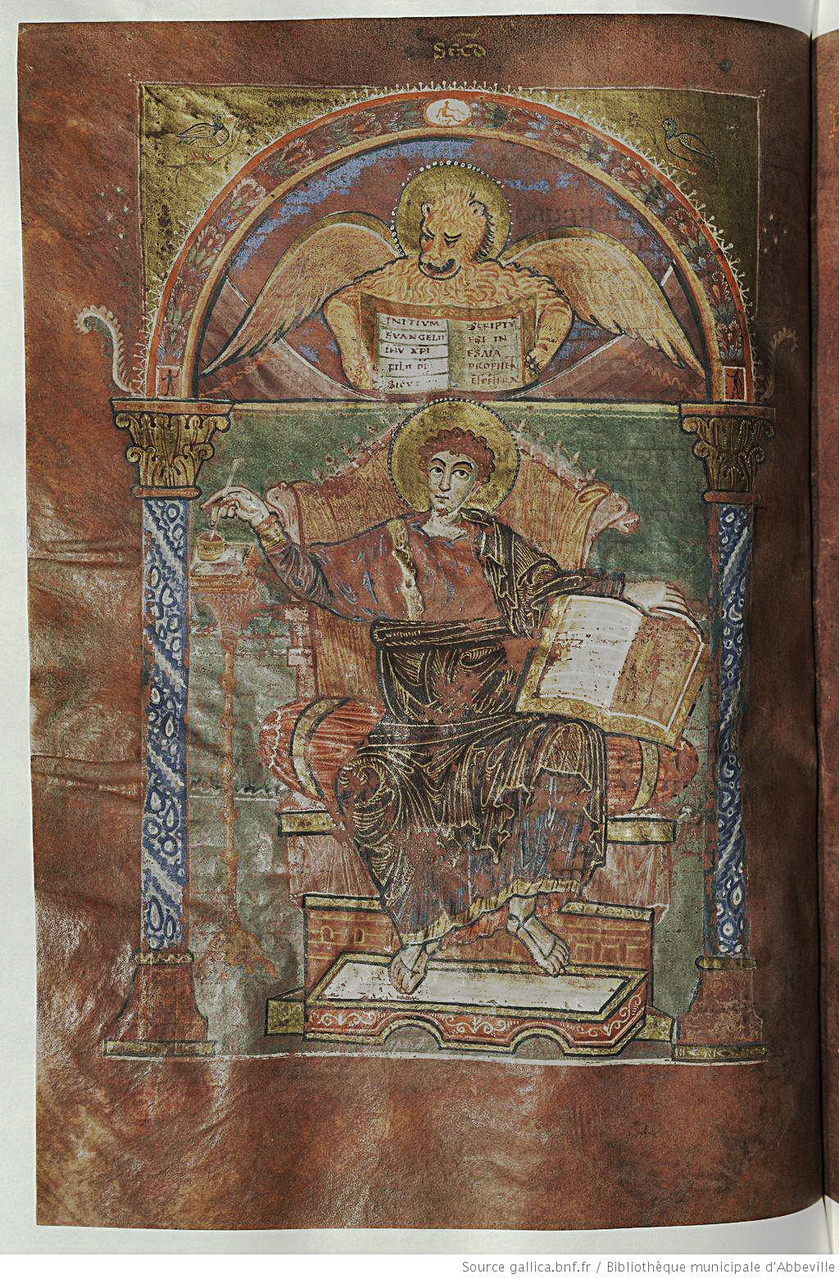 INITIUM
EVANGELII
IHU XPI
FILII DI
SICUT
SCRIPTU
EST IN
ESAIA
Source gallica.bnf.fr / Bibliothèque municipale d'Abbeville